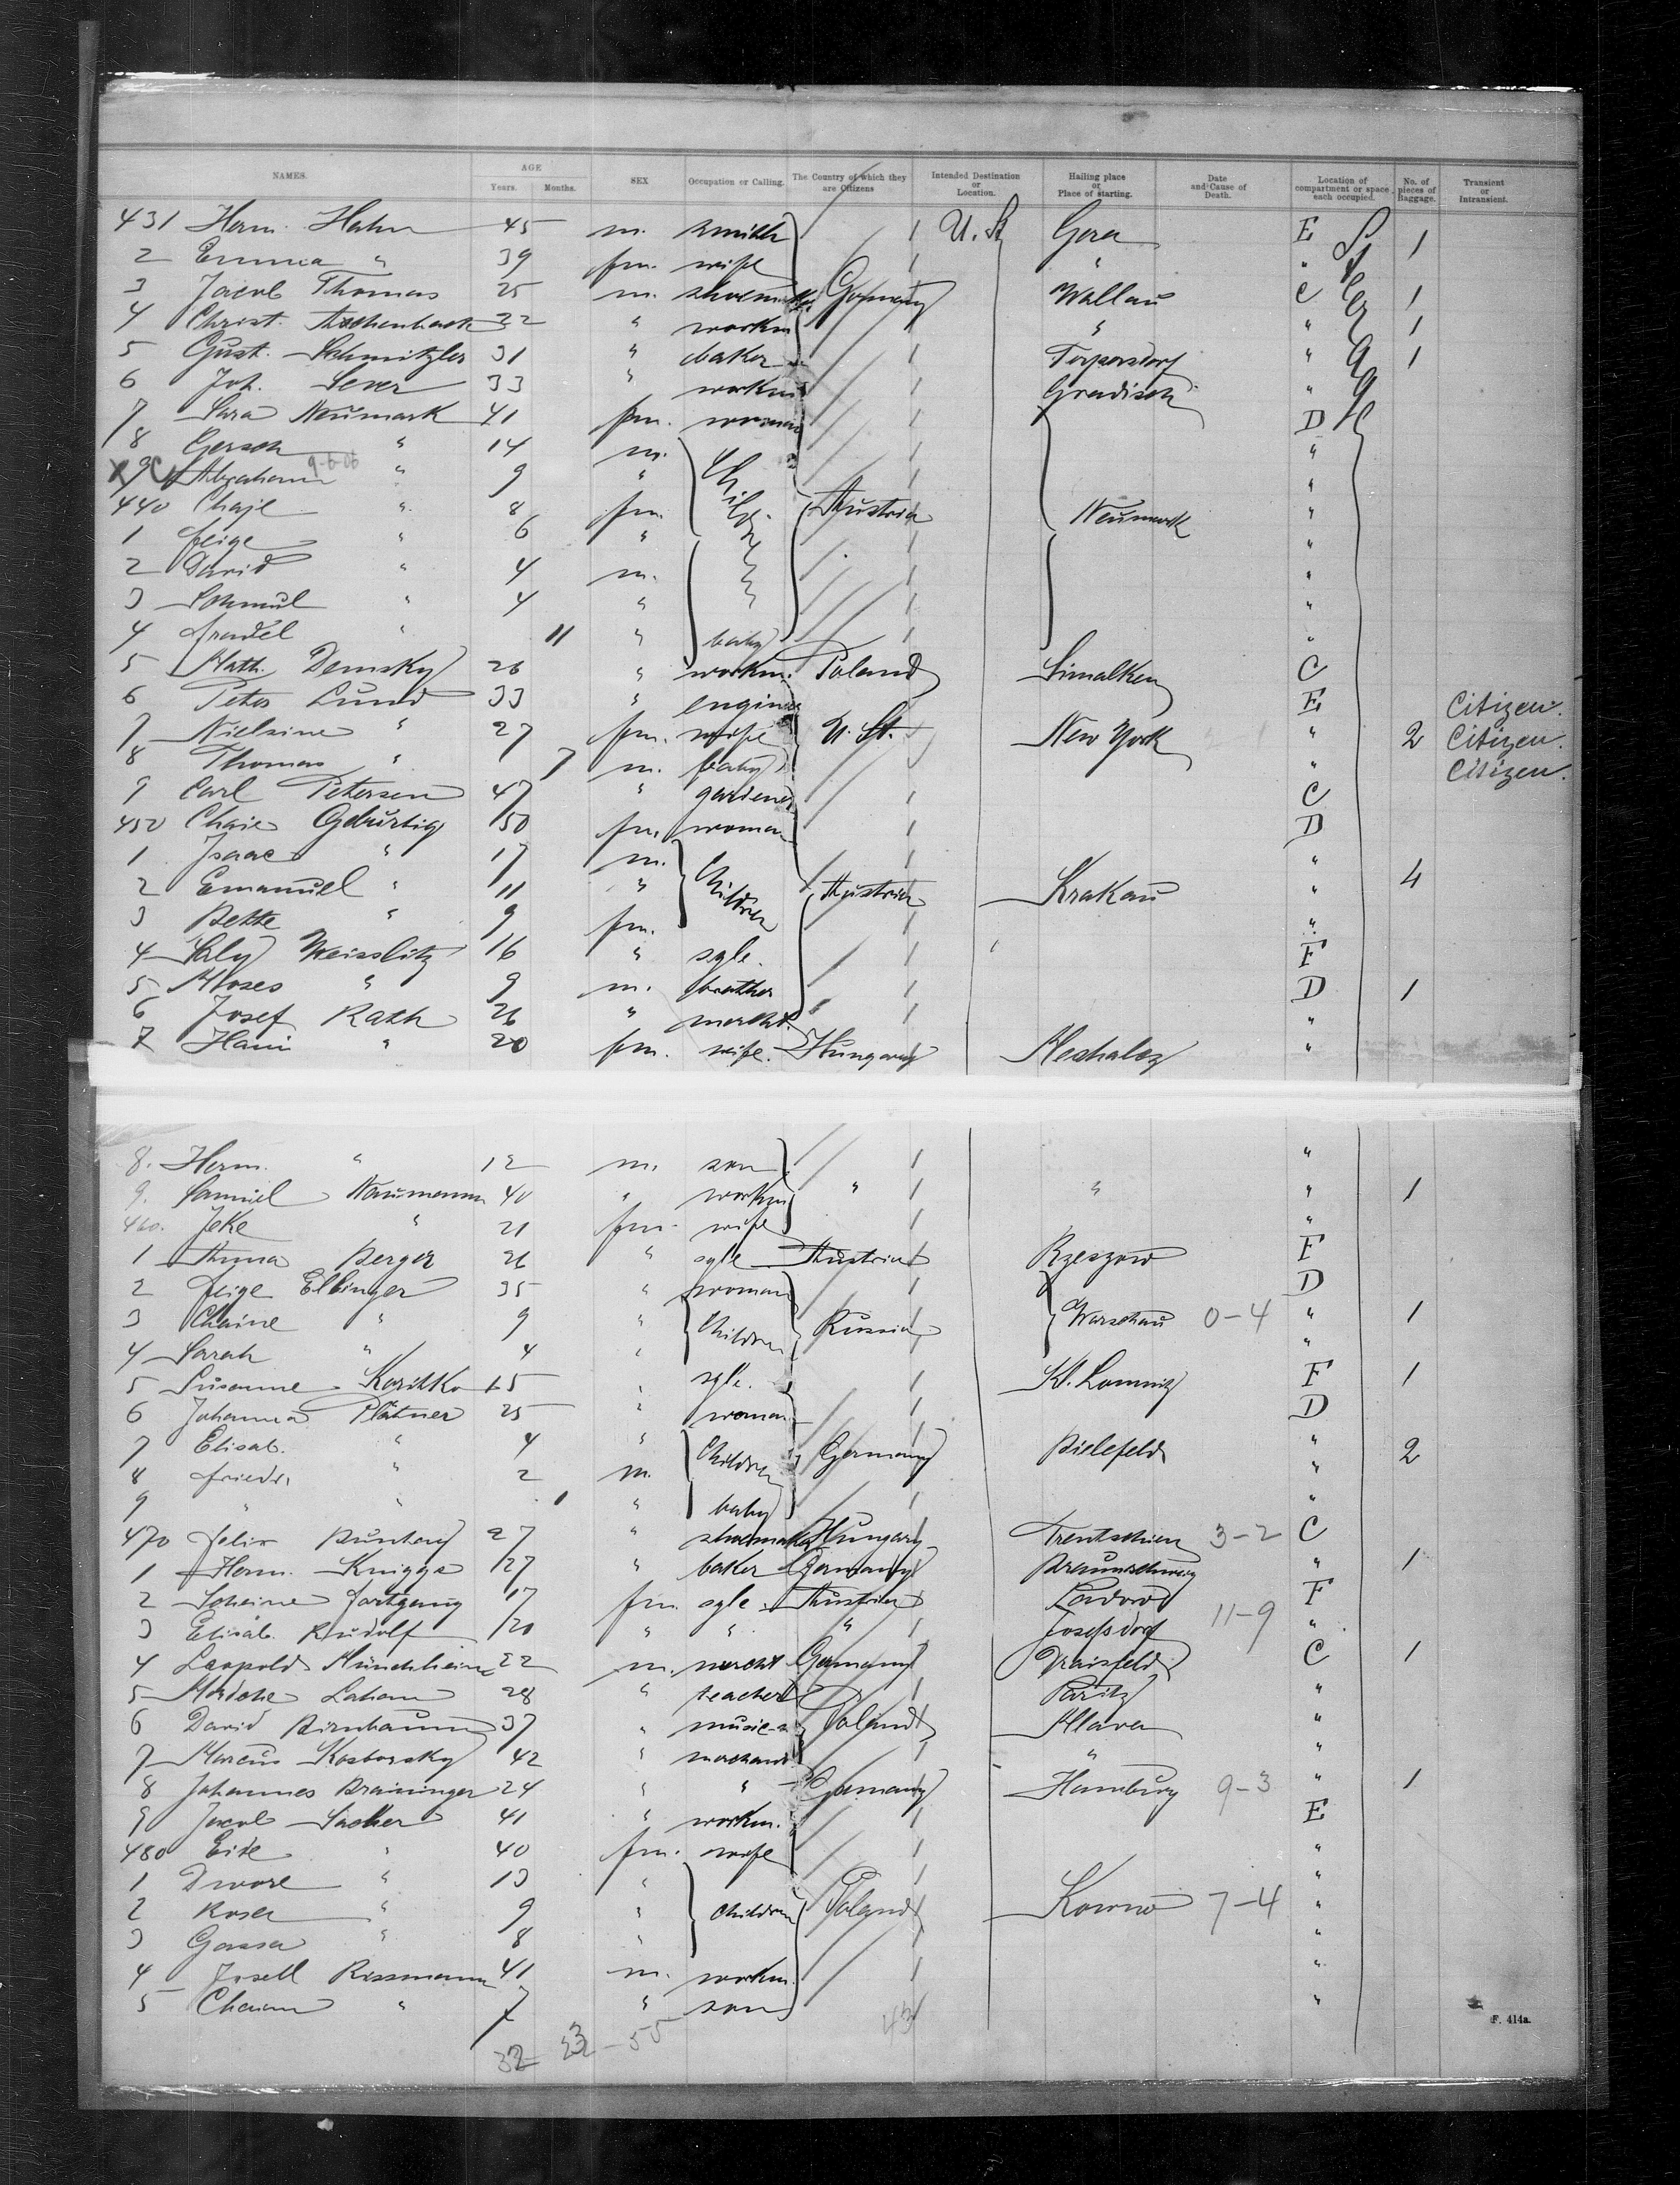 NAMES. AGE Years. Months. SEX Occupation or Calling. The Country of which they are Citizens Intended Destination or Location. Hailing place or Place of starting. Date and Cause of Death. Location of compartment or space each occupied. No. of pieces of Baggage. Transient or Intransient.
431 Herm. Hahn 45 m. smith U. St. Gera E 1
2 Emma " 39 fm. wife " "
3 Jacob Thomas 25 m. shoemaker Germany Wallau C 1
4 Christ. Aschenbach 22 " workm " " 1
5 Gust. Schmitzler 31 " baker " 1
6 Joh. Sever 33 " workm Gradisch "
7 Sara Neumark 41 fm. woman D
8 Gersch " 14 m. "
9 Abraham 9-6-06 " 9 " Childr. "
440 Chaje " 8 fm. Austria Neumark "
1 feige " 6 " "
2 David " 4 m. " "
3 Schmul " 4 " " "
4 fradel " 11 " baby "
5 Math. Demsky 26 " workm. Poland Simalken C
6 Peter Lund 33 " engineer E Citizen.
7 Nielsine " 27 fm. wife U. St. New York " 2 Citizen.
8 Thomas " 7 m. baby " Citizen.
9 Carl Petersen 47 " gardener C
450 Chaie Gebürtig 50 fm. woman D
1 Isaac " 17 m. "
2 Emanuel " 11 " Children Austria Krakau " 4
3 Bette " 9 fm. "
4 Saly Weisslitz 16 " sgle. F
5 Moses " 9 m. brother " D 1
6 Josef Rath 26 " mercht. "
7 Hani " 20 fm. wife. Hungary "
8. Herm. " 12 m. son "
9. Samuel Naumann 40 " workm " " " 1
460. Jeke " 21 fm. wife "
1 Anna Berger 26 " sgle Austria Rzeszow F
2 feige Elbinger 35 " woman D
3 Chaine " 9 " Children Russia Warschau 0-4 " 1
4 Sarah " 4 " "
5 Susanne Koritko 15 " sgle. Kl. Lomnitz F 1
6 Johanna Plätner 25 " woman D
7 Elisab. " 4 " Children Germany Bielefeld " 2
8 friedr. " 2 m. "
9 " " 1 " baby "
470 felix 27 " shoemaker Hungary Trentschien 3-2 C
1 Herm. Knigge 27 " baker Germany Braunschweig " 1
2 Scheine fortgang 17 fm. sgle. Austria F
3 Elisab. Rudolf 20 " " " Josefsdorf 11-9 "
4 Leopold Münchheim 22 m. mercht Germany Praisfeld C 1
5 Mordche Laham 28 " teacher "
6 David Birnbaum 37 " music-n Poland Mlava "
7 Marcus Kosborsky 42 " merchant " "
8 Johannes Braininger 24 " " Germany Hamburg 9-3 " 1
9 Jacob Sacher 41 " workm. E
480 Eite " 40 fm. wife "
1 Dwore " 13 " "
2 Roser " 9 " children Poland Kowno 7-4 "
3 Gassa " 8 " "
4 Josell Rissmann 41 m. workm. "
5 Chaim " 7 " son "
32 23 - 55 43
F. 414a.